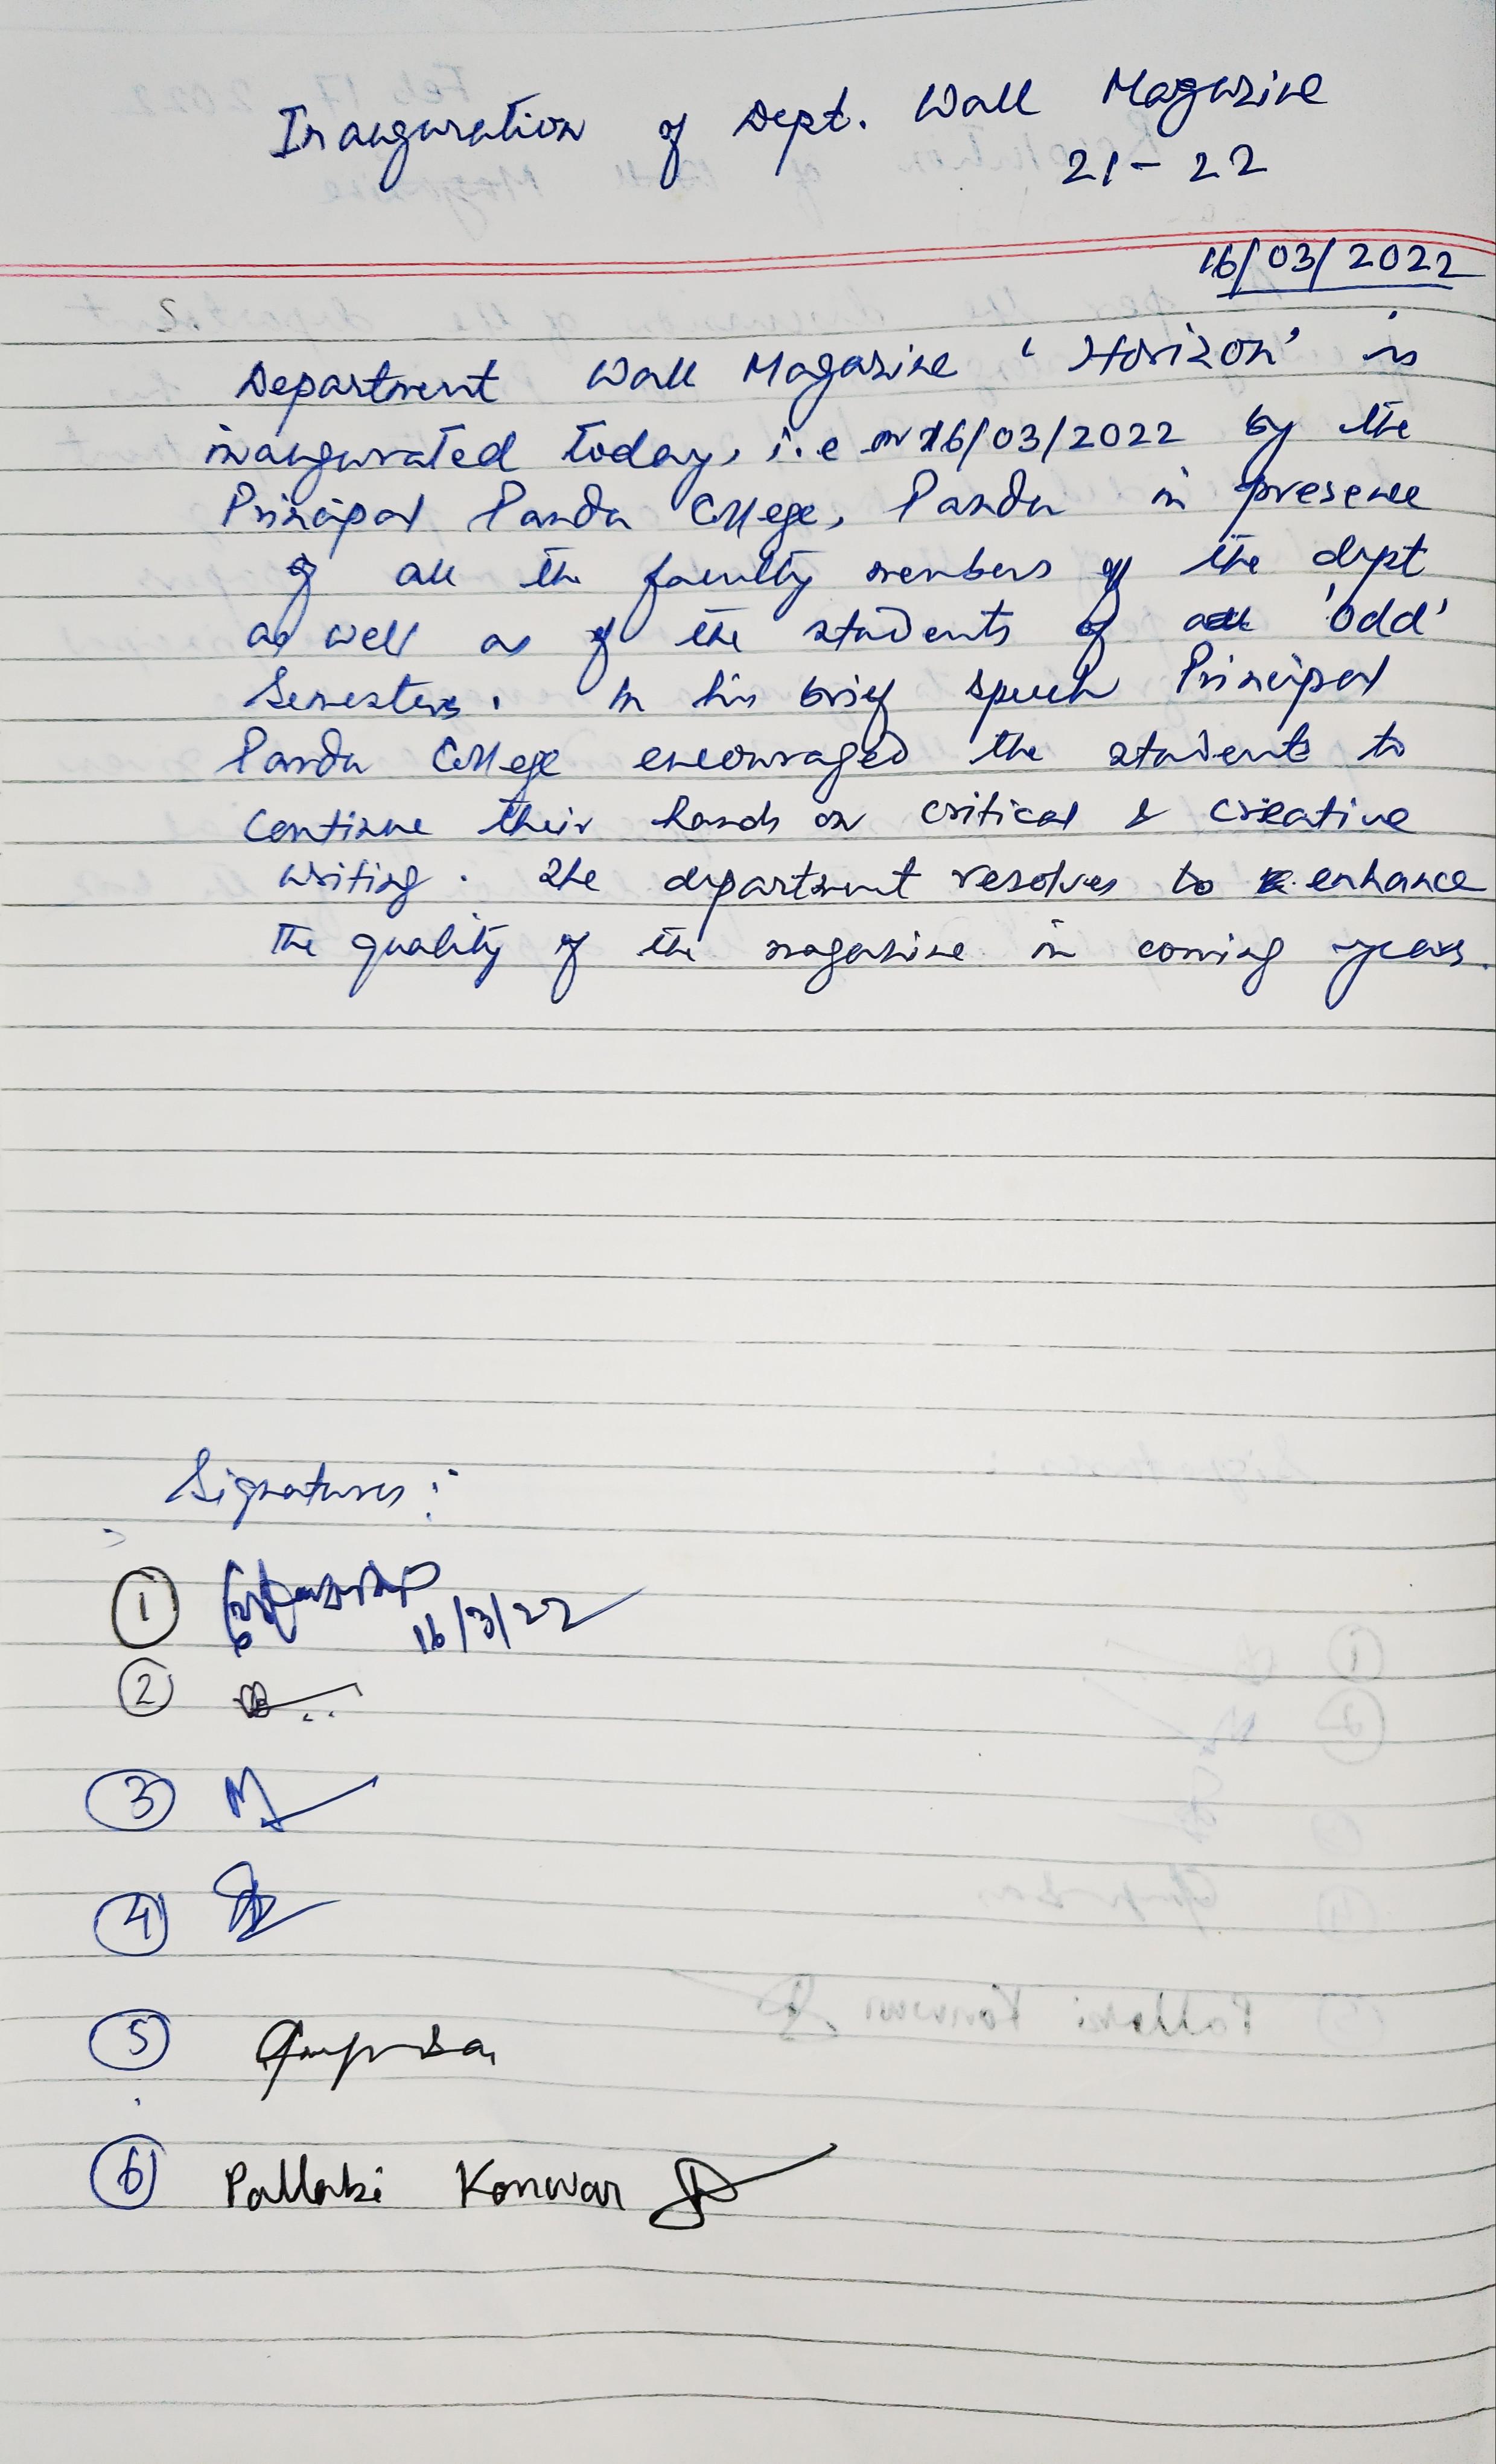 Inauguration of Dept. Wall Magazine
21-22
16/03/2022
Department Wall Magazine 'Horizon' is
inaugurated today, i.e on 16/03/2022 by the
Principal Pandu College, Pandu in presence
of all the faculty members of the dept
as well as of the students of all 'odd'
Semesters. In his brief speech Principal
Pandu College encouraged the students to
continue their hands on critical & creative
writing. The department resolves to enhance
the quality of the magazine in coming years.
Signatures :-
1
16/3/22
2
3
4
5
6 Pallabi Konwar